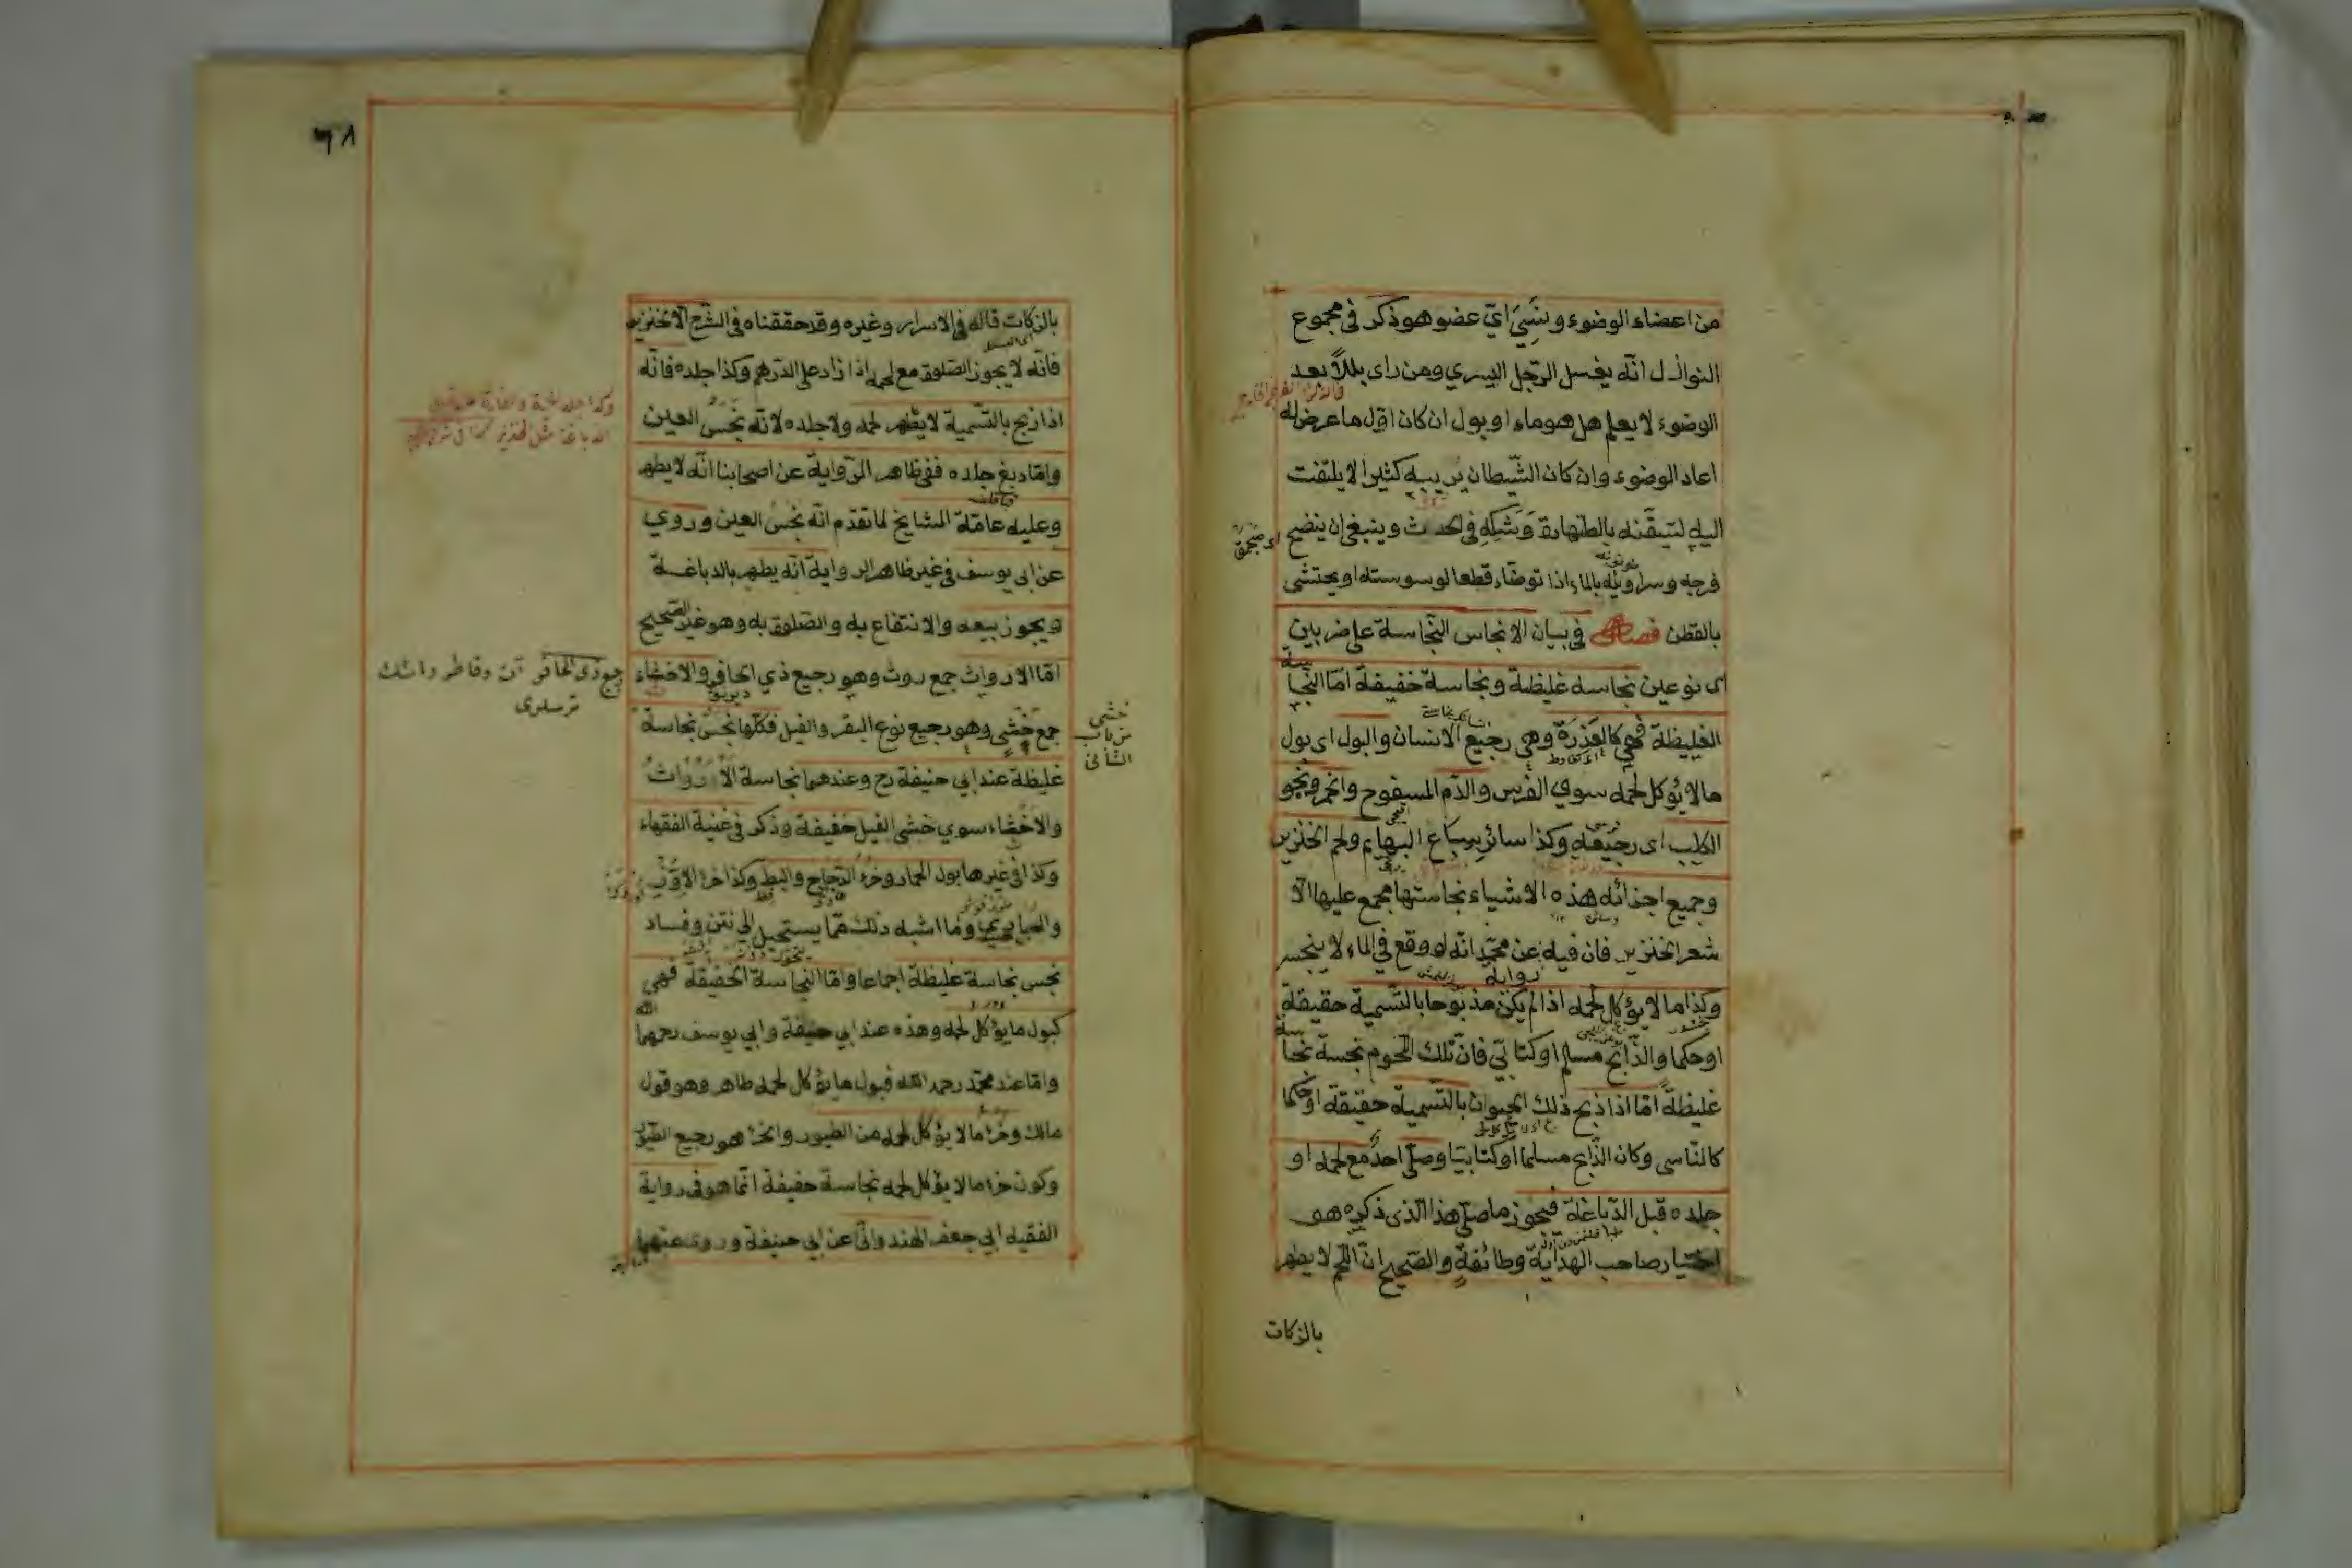 من اعضاء الوضوء ونسي اي عضو هو ذكر في مجموع
النوازل انه يغسل الرجل اليسري ومن راى بللا بعد
الوضوء لا يعلم هل هو ماء او بول ان كان اول ما عرض له
اعاد الوضوء وان كان الشيطان يريبه كثيرا لا يلتفت
اليه لتيقنه بالطهارة وشكه في الحدث وينبغي ان ينضح
فرجه وسراويله بالماء اذا توضاء قطعا لوسوسته او يحتشى
بالقطن فصل في بيان الانجاس النجاسة على ضربين
اى نوعين نجاسة غليظة ونجاسة خفيفة اما النجاسة
الغليظة فهي كالعذرة وهي رجيع الانسان والبول اى بول
ما لا يؤكل لحمه سوي الفرس والدم المسفوح والخمر ونجو
الكلب اى رجيعه وكذا سائر سباع البهايم ولحم الخنزير
وجميع اجزائه هذه الاشياء نجاستها مجمع عليها الا
شعر الخنزير فان فيه عن محمد انه لو وقع في الماء لا ينجس
رواية
وكذا ما لا يؤكل لحمه اذا لم يكن مذبوحا بالتسمية حقيقة
او حكما والذابح مسلم او كتابي فان تلك اللحوم نجسة نجاسة
غليظة اما اذا ذبح ذلك الحيوان بالتسمية حقيقة او حكما
كالناسى وكان الذابح مسلما او كتابيا وصلى احد مع لحمه او
جلده قبل الدباغة فيجوز ما صلى هذا الذى ذكره هو
اختيار صاحب الهداية وطائفة والصحيح ان اللحم لا يطهر
بالزكات
٦٨
بالزكات قاله في الاسرار وغيره وقد حققناه في الشرح الا الخنزير
فانه لا يجوز الصلوة مع لحمه اذا زاد على الدرهم وكذا جلده فانه
اذا ذبح بالتسمية لا يطهر لحمه ولا جلده لانه نجس العين
واما دبغ جلده ففي ظاهر الرواية عن اصحابنا انه لا يطهر
وعليه عامة المشايخ لما تقدم انه نجس العين وروي
عن ابى يوسف في غير ظاهر الرواية انه يطهر بالدباغة
ويجوز بيعه والانتفاع به والصلوة به وهو غير الصحيح
اما الارواث جمع روث وهو رجيع ذي الحافر والاخثاء
جمع خثى وهو رجيع نوع البقر والفيل فكلها نجس نجاسة
خثى
من باب
الثانى
غليظة عند ابي حنيفة رح وعندهما نجاسة الارواث
والاخثاء سوي خثى الفيل خفيفة وذكر في غنية الفقهاء
وكذا في غيرها بول الحمار وخرء الدجاج والبط وكذا خرء الاوز
والحبارى وما اشبه ذلك مما يستحيل الى نتن وفساد
نجس نجاسة غليظة اجماعا واما النجاسة الخفيفة فهى
كبول ما يؤكل لحمه وهذه عند ابي حنيفة وابي يوسف رحمهما الله
واما عند محمد رحمه الله فبول ما يؤكل لحمه طاهر وهو قول
مالك وخرء ما لا يؤكل لحمه من الطيور والخرء هو رجيع الطيور
وكون خرء ما لا يؤكل لحمه نجاسة خفيفة انما هو في رواية
الفقيه ابي جعفر الهندوانى عن ابي حنيفة وروى عنهما